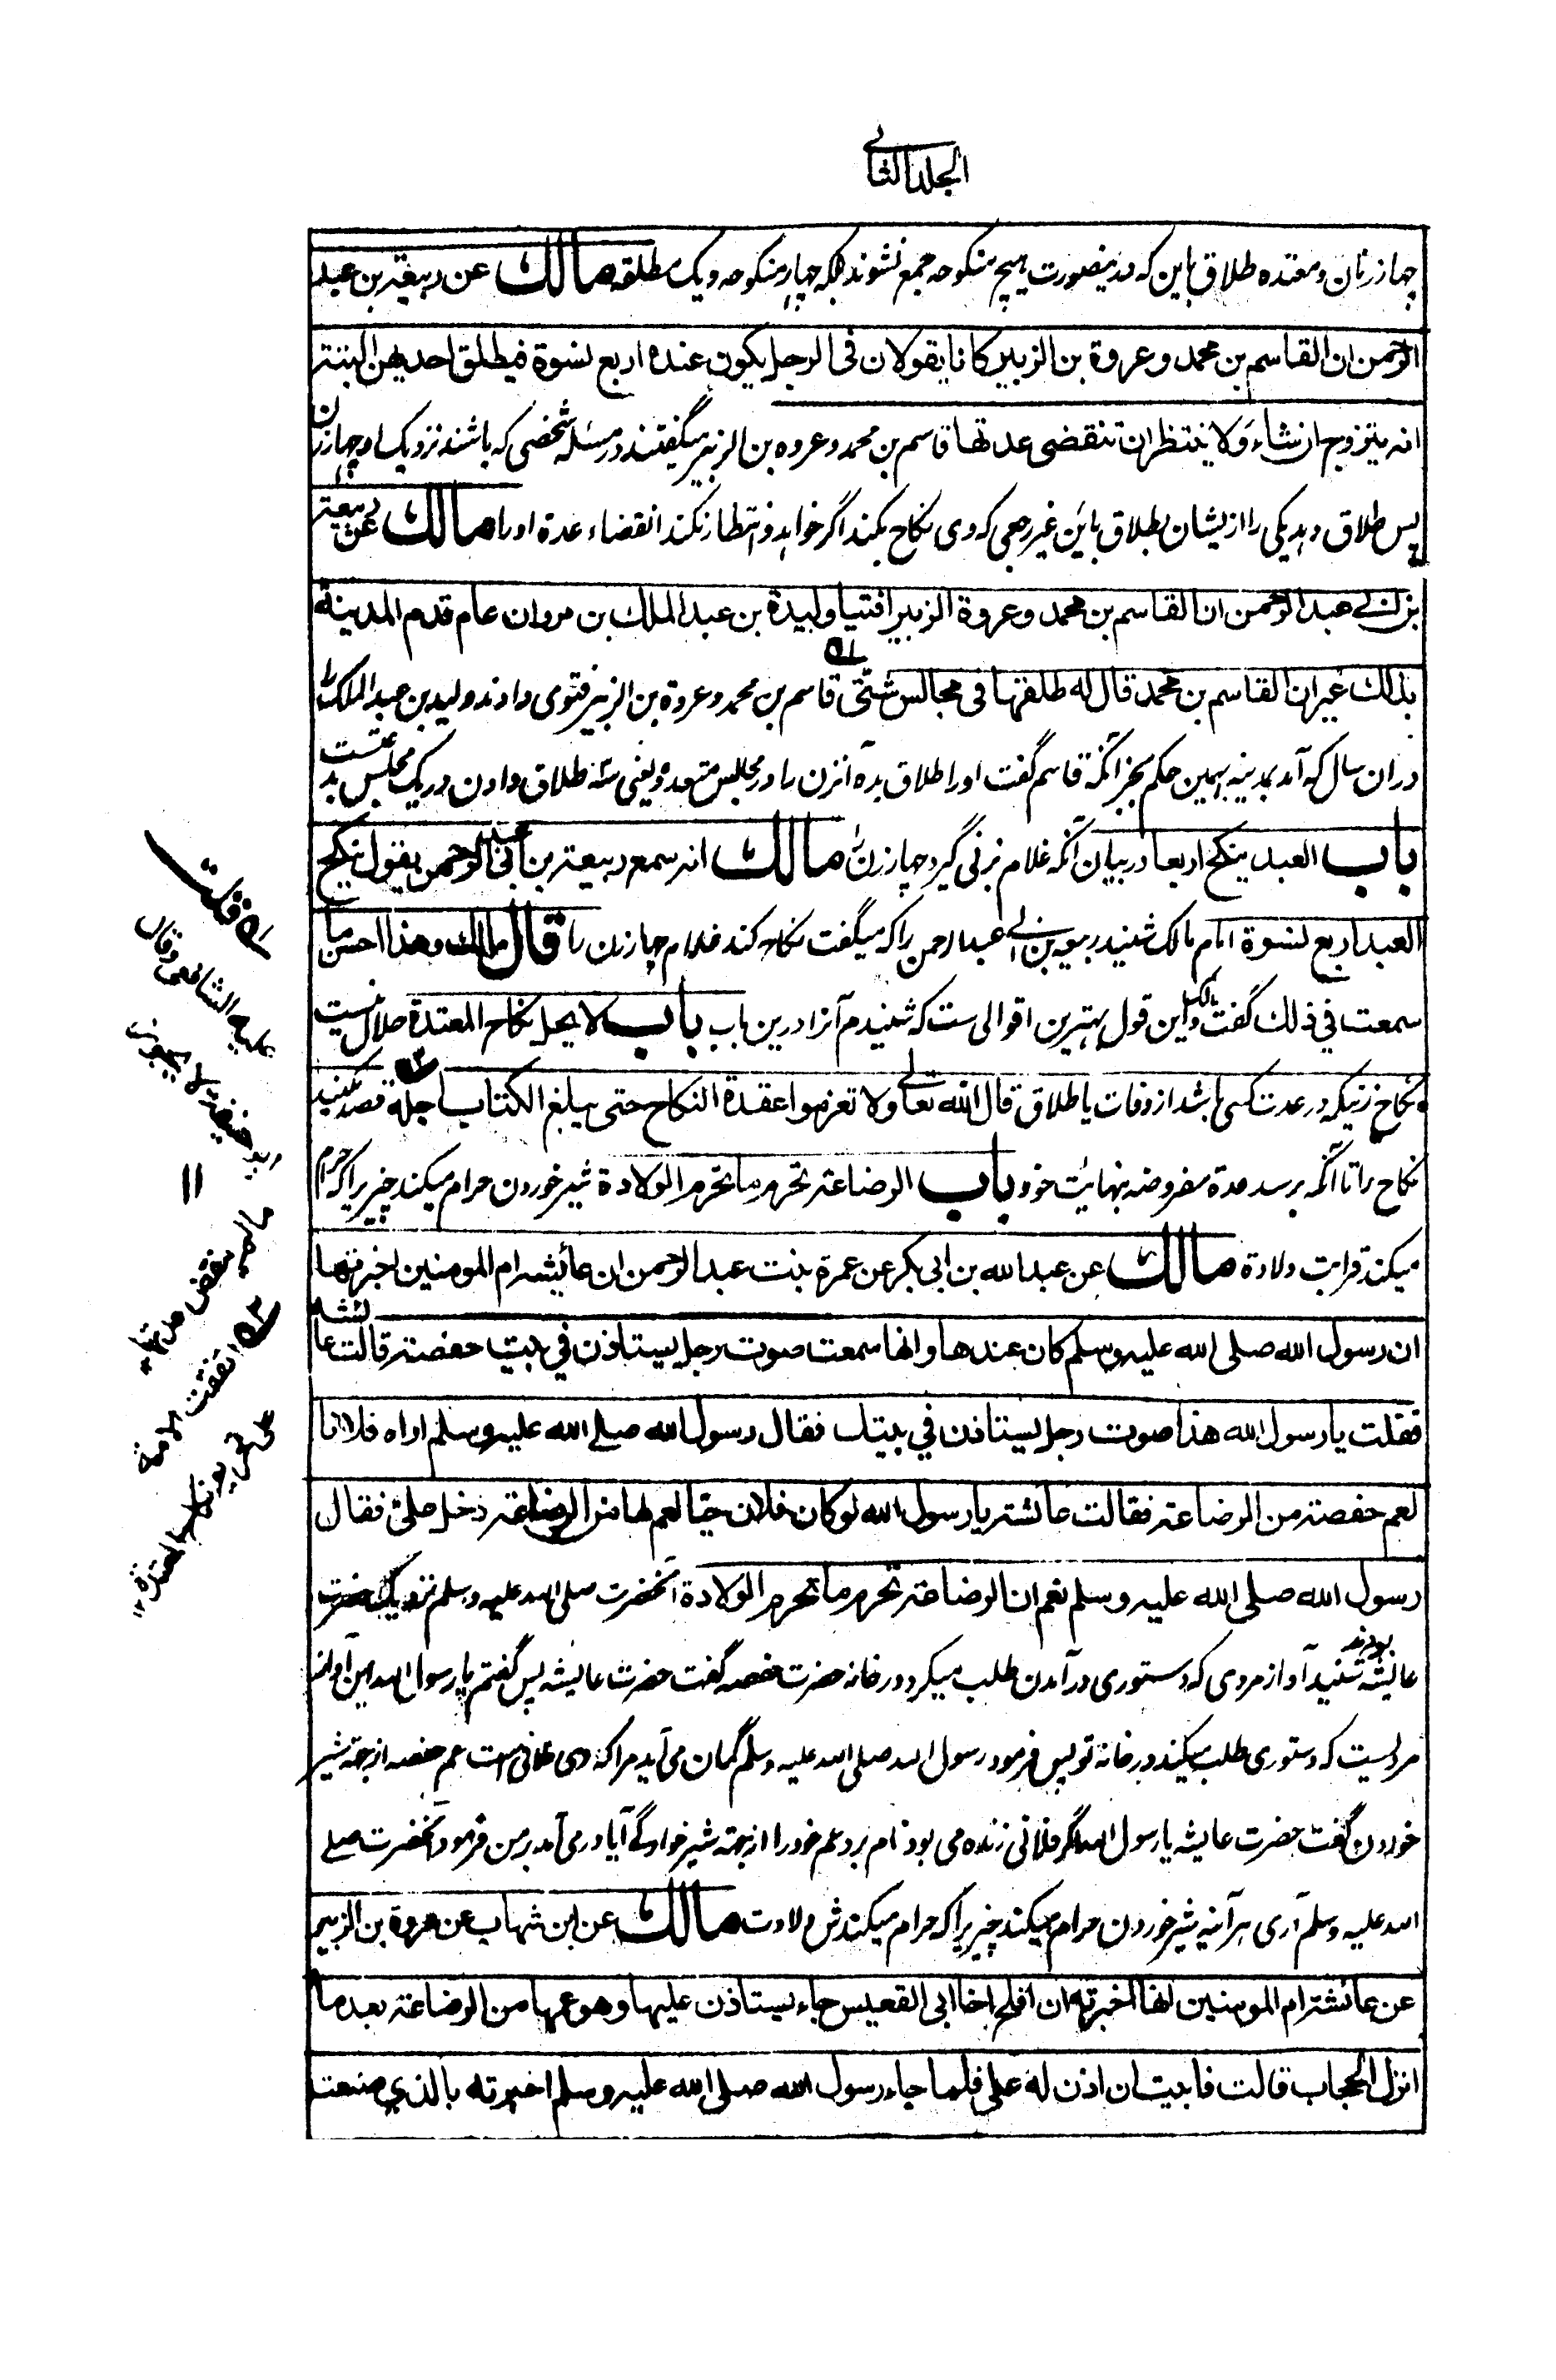 الجلد الثانی
چهار زنان و معتده طلاق باین که درینصورت پنج منکوحه جمع نشوند بلکه چهار منکوحه و یک مطلقه مالك عن ربيعة بن عبد
الرحمن ان القاسم بن محمد و عروة بن الزبير كانا يقولان فى الرجل يكون عنده اربع نسوة فيطلق احديهن البتة
انه يتزوج ان شاء ولا ينتظر ان تنقضى عدتها قاسم بن محمد و عروه بن الزبیر میگفتند در مسئله شخصی که باشند نزدیک او چهار زن
پس طلاق دهد یکی را ازیشان بطلاق باین غیر رجعی که وی نکاح بکند اگر خواهد و انتظار نکند انقضاء عدة او را مالك عن ربيعة
بن ابى عبد الرحمن ان القاسم بن محمد و عروة الزبير افتيا وليدة بن عبد الملك بن مروان عام قدم المدينة
بذلك غير ان القاسم بن محمد قال له طلقها فى مجالس شتى قاسم بن محمد و عروة بن الزبیر فتوی دادند ولید بن عبد الملک را
در ان سال که آمد بمدینه بهمین حکم بجز آنکه قاسم گفت او را طلاق بده آنزن را در مجلس متعدده یعنی سه طلاق دادن در یک مجلس بدعتست
باب العبد ينكح اربعا در بیان آنکه غلام بزنی گیرد چهار زن را مالك انه سمع ربيعة بن ابى عبد الرحمن يقول ينكح
العبد اربع نسوة امام مالک شنید ربیعه بن ابی عبد الرحمن را که میگفت نکاح کند غلام چهار زن را قال مالك وهذا احسن ما
سمعت في ذلك گفت مالک و این قول بهترین اقوالی ست که شنیدم آنرا درین باب باب لا يحل نكاح المعتدة حلال نیست
نکاح زنیکه در عدت کسی باشد از وفات یا طلاق قال الله تعالى ولا تعزموا عقدة النكاح حتى يبلغ الكتاب اجله قصد مکنید
نکاح را تا آنکه برسد عدة مفروضه بنهایت خود باب الرضاعة تحرم ما تحرم الولادة شیر خوردن حرام میکند چیزیرا که حرام
میکند قرابت ولادة مالك عن عبد الله بن ابى بكر عن عمرة بنت عبد الرحمن ان عائشة ام المومنين اخبرتها
ان رسول الله صلى الله عليه وسلم كان عندها وانها سمعت صوت رجل يستاذن في بيت حفصة قالت عائشة
فقلت يا رسول الله هذا صوت رجل يستاذن في بيتك فقال رسول الله صلى الله عليه وسلم اراه فلانا
لعم حفصة من الرضاعة فقالت عائشة يا رسول الله لو كان فلان حيا لعم لها من الرضاعة دخل على فقال
رسول الله صلى الله عليه وسلم نعم ان الرضاعة تحرم ما تحرم الولادة آنحضرت صلی الله علیه وسلم نزدیک حضرت
عایشه بودند شنید آواز مردی که دستوری در آمدن طلب میکرد در خانه حضرت حفصه گفت حضرت عایشه پس گفتم یا رسول الله این آواز
مردیست که دستوری طلب میکند در خانه تو پس فرمود رسول الله صلی الله علیه وسلم گمان می آید مرا که وی فلانی است عم حفصه از جهة شیر
خوردن گفت حضرت عایشه یا رسول الله اگر فلانی زنده می بود نام برد عم خود را از جهة شیر خوارگی آیا در می آمد بر من فرمود آنحضرت صلے
الله علیه وسلم آری هر آئینه شیر خوردن حرام میکند چیزیرا که حرام میکندش ولادت مالك عن ابن شهاب عن عروة بن الزبير
عن عائشة ام المومنين انها اخبرته ان افلح اخا ابى القعيس جاء يستاذن عليها وهو عمها من الرضاعة بعد ما
انزل الحجاب قالت فابيت ان اذن له على فلما جاء رسول الله صلى الله عليه وسلم اخبرته بالذي صنعت
له قلت
عليه الشافعي وقال
ابو حنيفة لا يجوز
مالم ينقض عدتها
له اتفقت الامة
على تحريم نكاح المعتدة ١٢